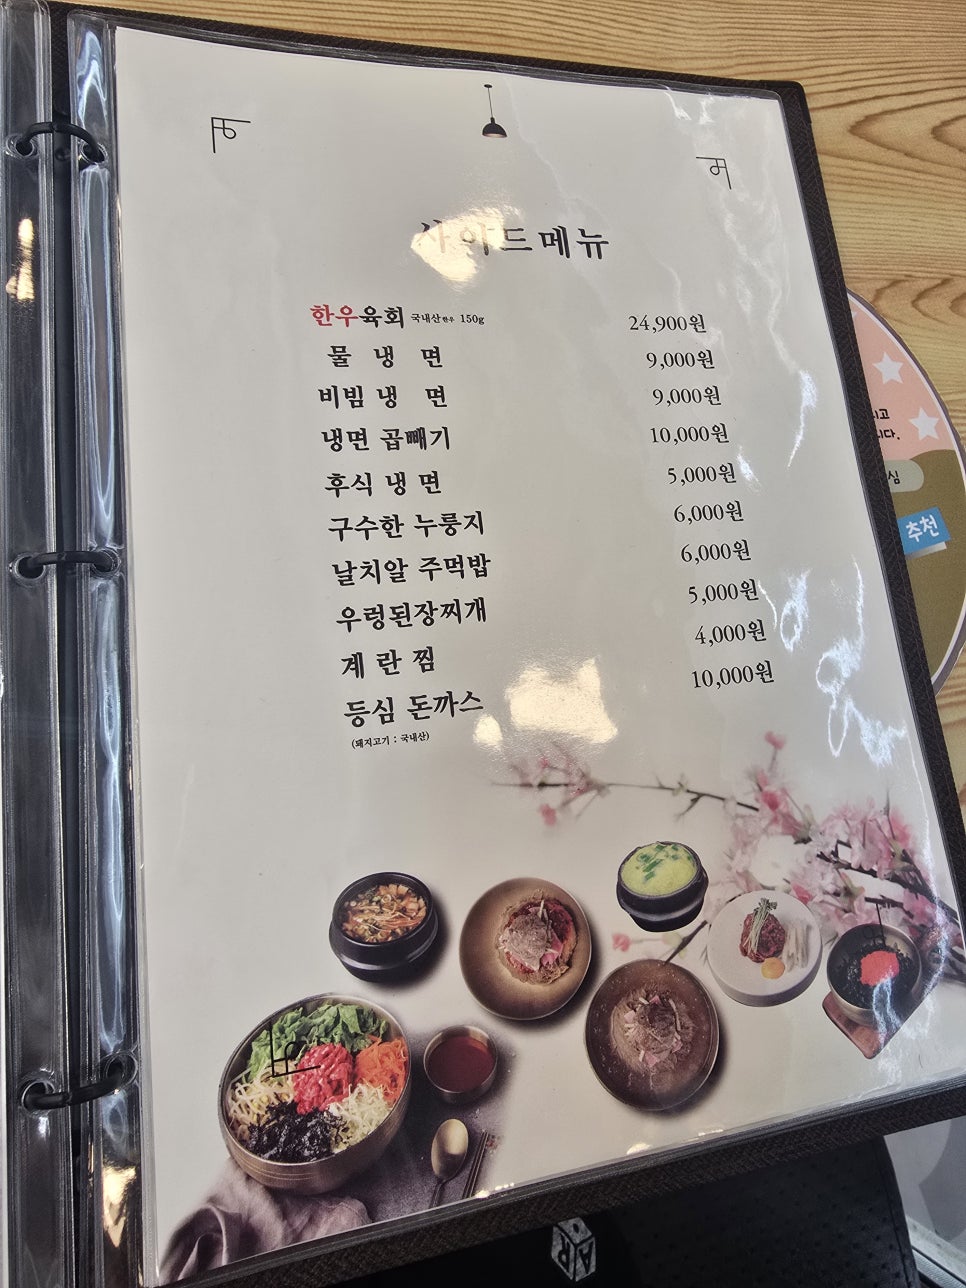 사이드메뉴
한우육회 국내산 한우 150g 24,900원
물 냉 면 9,000원
비빔 냉 면 9,000원
냉면 곱빼기 10,000원
후식 냉 면 5,000원
구수한 누룽지 6,000원
날치알 주먹밥 6,000원
우렁된장찌개 5,000원
계 란 찜 4,000원
등심 돈까스 10,000원
(돼지고기 : 국내산)
추천